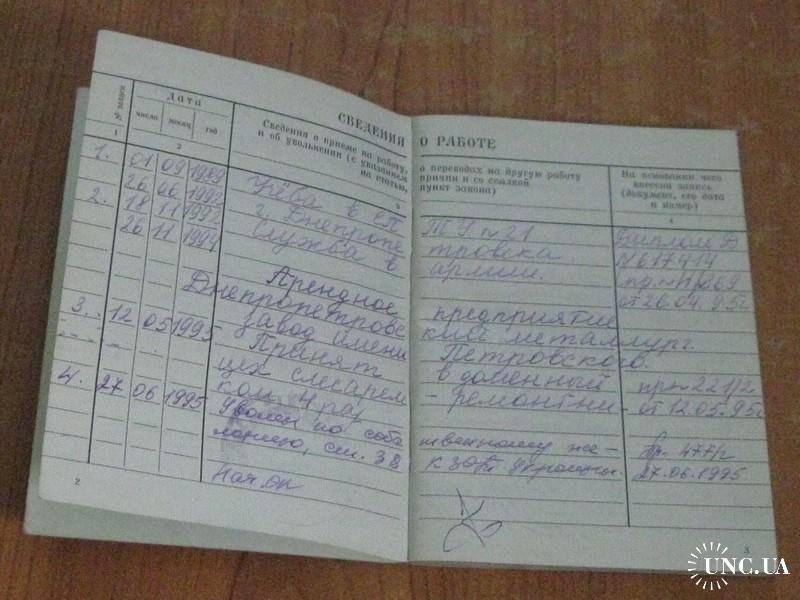 СВЕДЕНИЯ О РАБОТЕ
№ записи
Дата
число месяц год
Сведения о приеме на работу, о переводах на другую работу
и об увольнении (с указанием причин и со ссылкой
на статью, пункт закона)
На основании чего
внесена запись
(документ, его дата
и номер)
1 2 3
1. 01 09 1989 Учёба в СПТУ №21 Диплом
26 06 1992 г. Днепропетровска № 617414
2. 18 11 1992 Служба в армии.
26 11 1994 от 26.04.95г
Арендное предприятие
Днепропетровский металлург.
завод имени Петровского.
3. 12 05 1995 Принят в доменный
цех слесарем - ремонтни пр. 221/2
ком 4 раз от 12.05.95г
4. 27 06 1995 Уволен по собственному же-
ланию, ст. 38 КЗоТ Украины. Пр. 477/2
27.06.1995
Нач ОК
2
3
UNC.UA